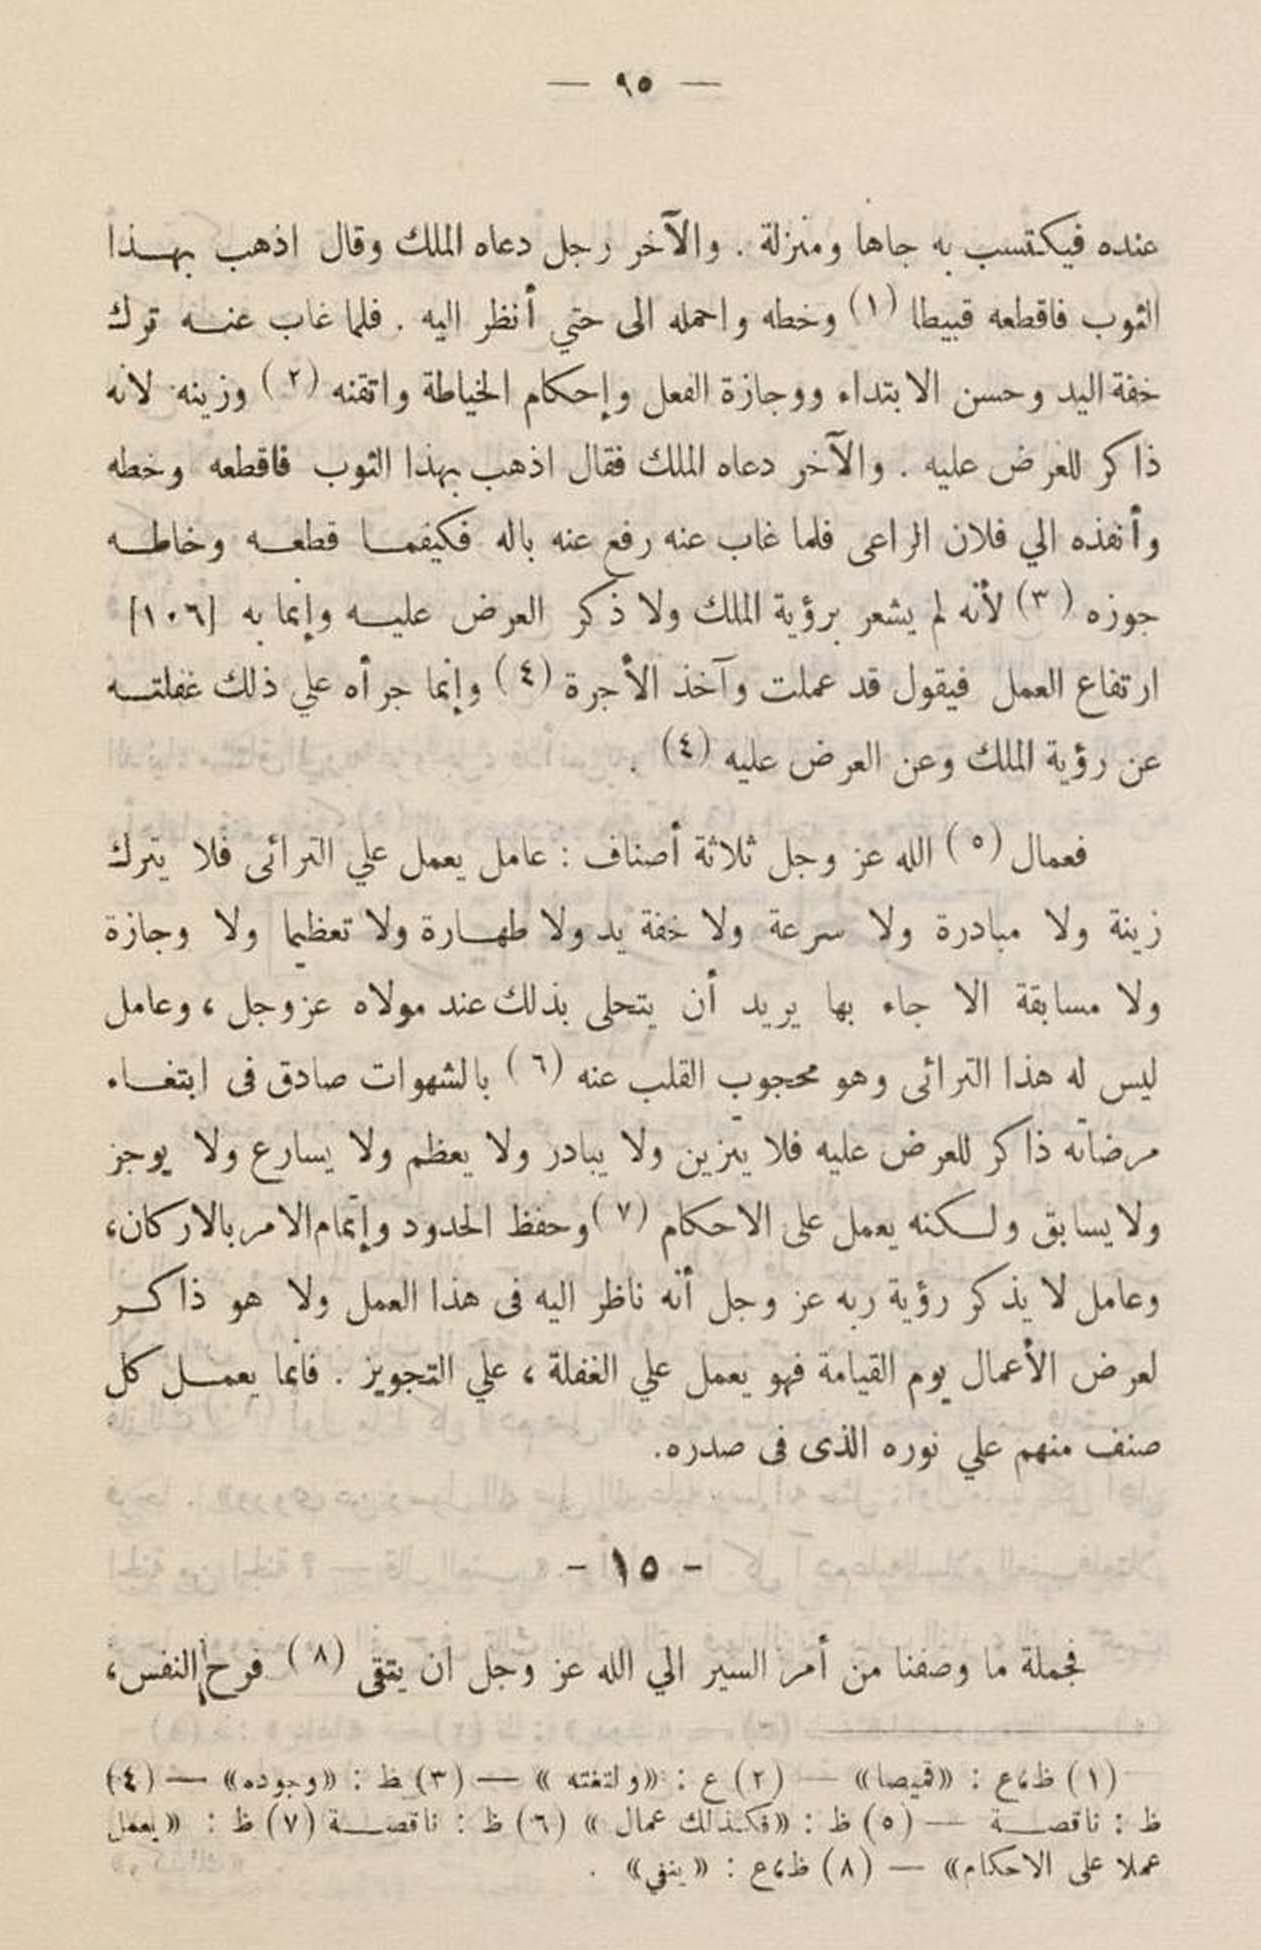 — ٩٥ —
عنده فيكتسب به جاها ومنزلة . والآخر رجل دعاه الملك وقال اذهب بهذا
الثوب فاقطعه قبيطا (١) وخطه واحمله الى حتي أنظر اليه . فلما غاب عنه ترك
خفة اليد وحسن الابتداء ووجازة الفعل وإحكام الخياطة واتقنه (٢) وزينه لانه
ذاكر للعرض عليه . والآخر دعاه الملك فقال اذهب بهذا الثوب فاقطعه وخطه
وأنفذه الي فلان الراعى فلما غاب عنه رفع عنه باله فكيفما قطعه وخاطه
جوزه (٣) لأنه لم يشعر برؤية الملك ولا ذكر العرض عليه وإنما به [١٠٦]
ارتفاع العمل فيقول قد عملت وآخذ الأجرة (٤) وإنما جرأه علي ذلك غفلته
عن رؤية الملك وعن العرض عليه (٤) .
فعمال (٥) الله عز وجل ثلاثة أصناف : عامل يعمل علي الترائى فلا يترك
زينة ولا مبادرة ولا سرعة ولا خفة يد ولا طهارة ولا تعظيما ولا وجازة
ولا مسابقة الا جاء بها يريد أن يتحلى بذلك عند مولاه عز وجل ، وعامل
ليس له هذا الترائى وهو محجوب القلب عنه (٦) بالشهوات صادق فى ابتغاء
مرضاته ذاكر للعرض عليه فلا يتزين ولا يبادر ولا يعظم ولا يسارع ولا يوجز
ولا يسابق ولكنه يعمل على الاحكام (٧) وحفظ الحدود وإتمام الامر بالاركان،
وعامل لا يذكر رؤية ربه عز وجل أنه ناظر اليه فى هذا العمل ولا هو ذاكر
لعرض الأعمال يوم القيامة فهو يعمل علي الغفلة ، علي التجويز . فانما يعمل كل
صنف منهم علي نوره الذى فى صدره.
- ١٥ -
فجملة ما وصفنا من أمر السير الي الله عز وجل ان يتقى (٨) فرح النفس،
(١) ظ،ع : «قميصا» — (٢) ع : «ولتغته » — (٣) ظ : «وجوده» — (٤)
ظ : ناقصة — (٥) ظ : «فكذلك عمال » (٦) ظ : ناقصة (٧) ظ : « يعمل
عملا على الاحكام» — (٨) ظ،ع : « ينفي» .